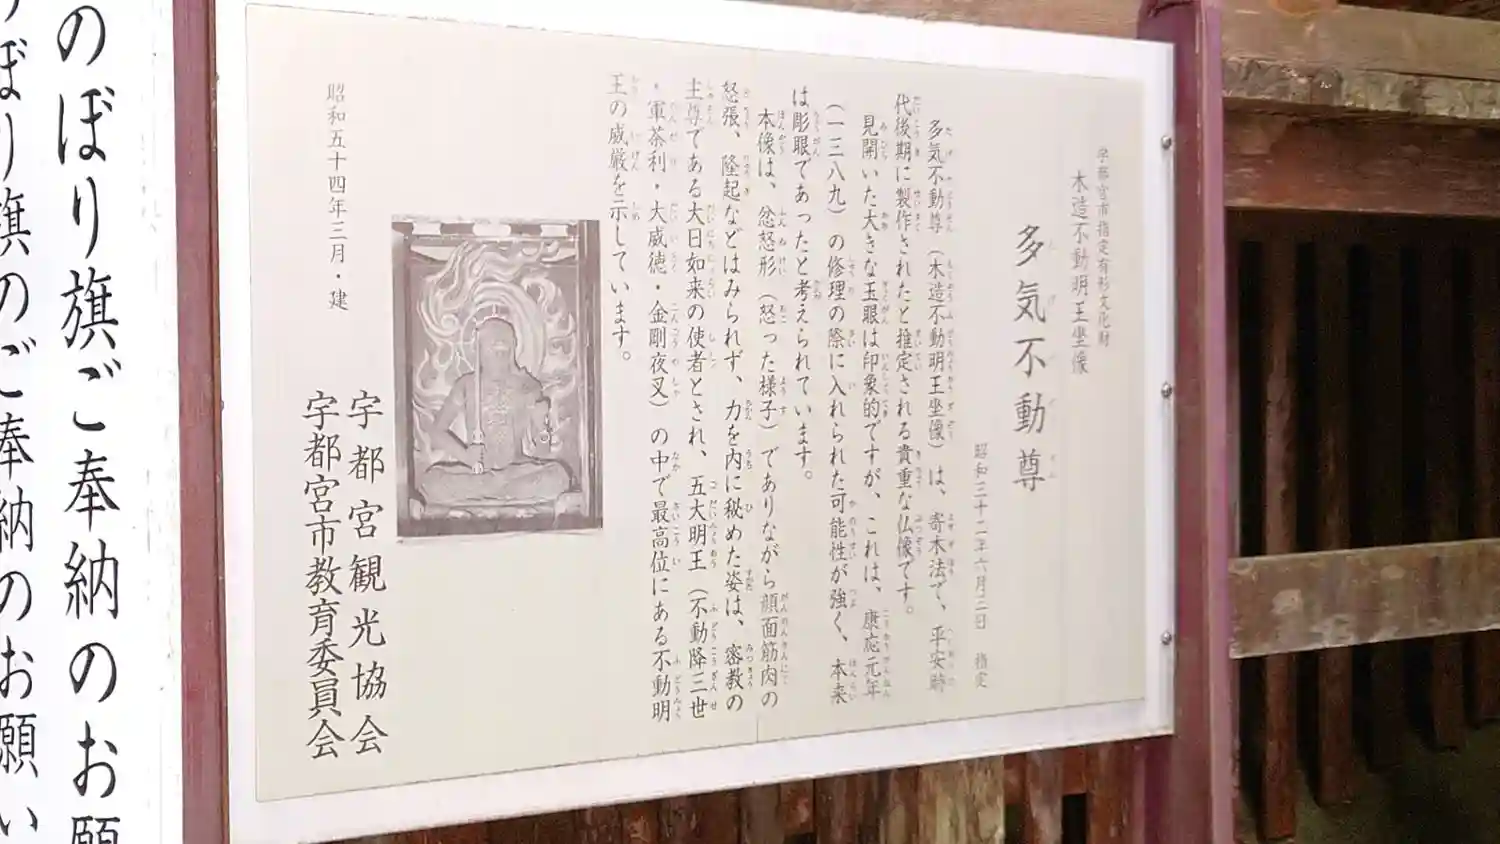 宇都宮市指定有形文化財
木造不動明王坐像
多気不動尊
昭和三十二年六月三日 指定
多気不動尊(木造不動明王坐像)は、寄木法で、平安時
代後期に製作されたと推定される貴重な仏像です。
見開いた大きな玉眼は印象的ですが、これは、康応元年
(一三八九)の修理の際に入れられた可能性が強く、本来
は彫眼であったと考えられています。
本像は、忿怒形(怒った様子)でありながら顔面筋肉の
怒張、隆起などはみられず、力を内に秘めた姿は、密教の
主尊である大日如来の使者とされ、五大明王(不動降三世
・軍荼利・大威徳・金剛夜叉)の中で最高位にある不動明
王の威厳を示しています。
昭和五十四年三月・建
宇都宮観光協会
宇都宮市教育委員会
のぼり旗ご奉納のお願
ぼり旗のご奉納のお願い